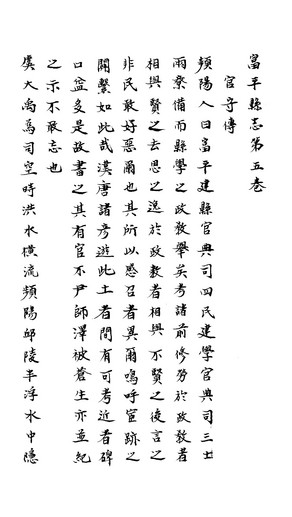 富平縣志第五卷
官守傳
頻陽人曰富平建縣官典司四民建學官典司三士
兩寮備而縣學之政教舉矣考諸前修勞於政教者
相與賢之去思之逸於政教者相與不賢之後言之
非民敢好惡爾也其所以感召者異爾嗚呼宦跡之
關繫如此哉漢唐諸彥遊此土者間有可考近者碑
口益多是故書之其有官不尹師澤被蒼生亦並紀
之示不敢忘也
虞大禹爲司空時洪水橫流頻陽邱陵半浮水中隱